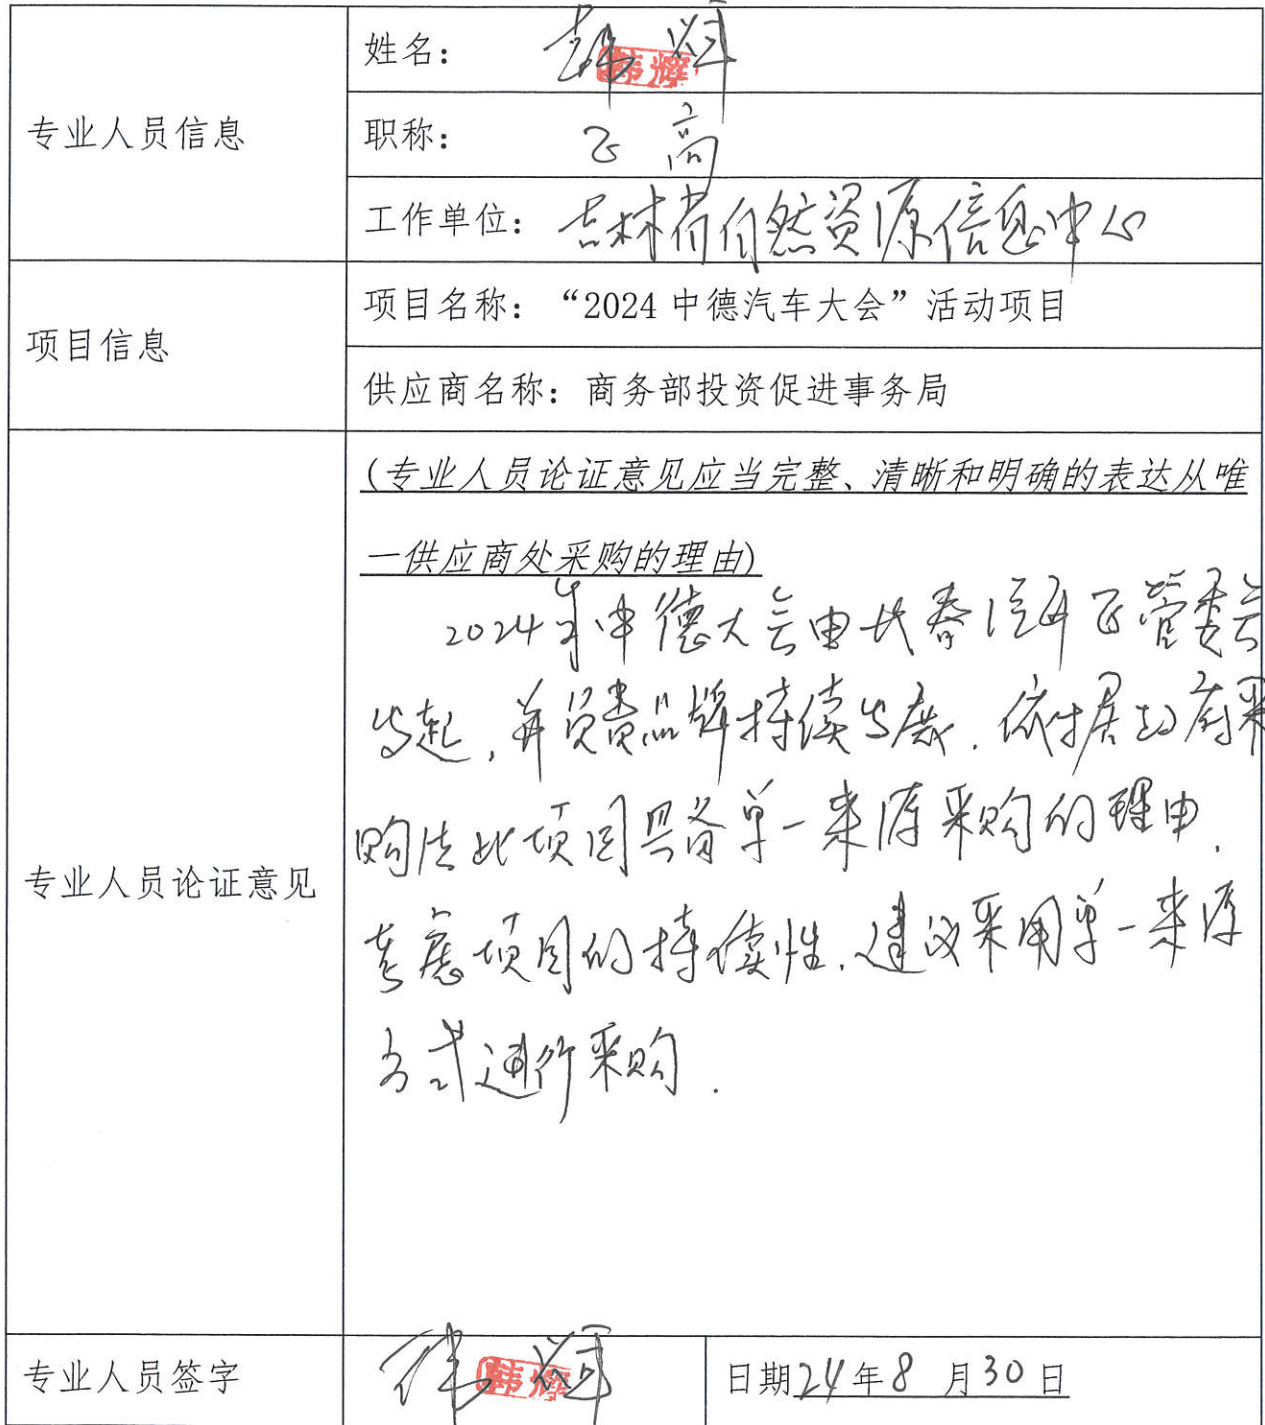 专业人员信息
姓名：韩辉
韩辉
职称：正高
工作单位：吉林省自然资源信息中心
项目信息
项目名称：“2024中德汽车大会”活动项目
供应商名称：商务部投资促进事务局
专业人员论证意见
(专业人员论证意见应当完整、清晰和明确的表达从唯
一供应商处采购的理由)
2024年中德大会由长春汽开区管委会
发起，并负责品牌持续发展．依据政府采
购法此项目具备单一来源采购的理由．
考虑项目的持续性．建议采用单一来源
方式进行采购．
专业人员签字
韩辉
韩辉
日期24年8月30日